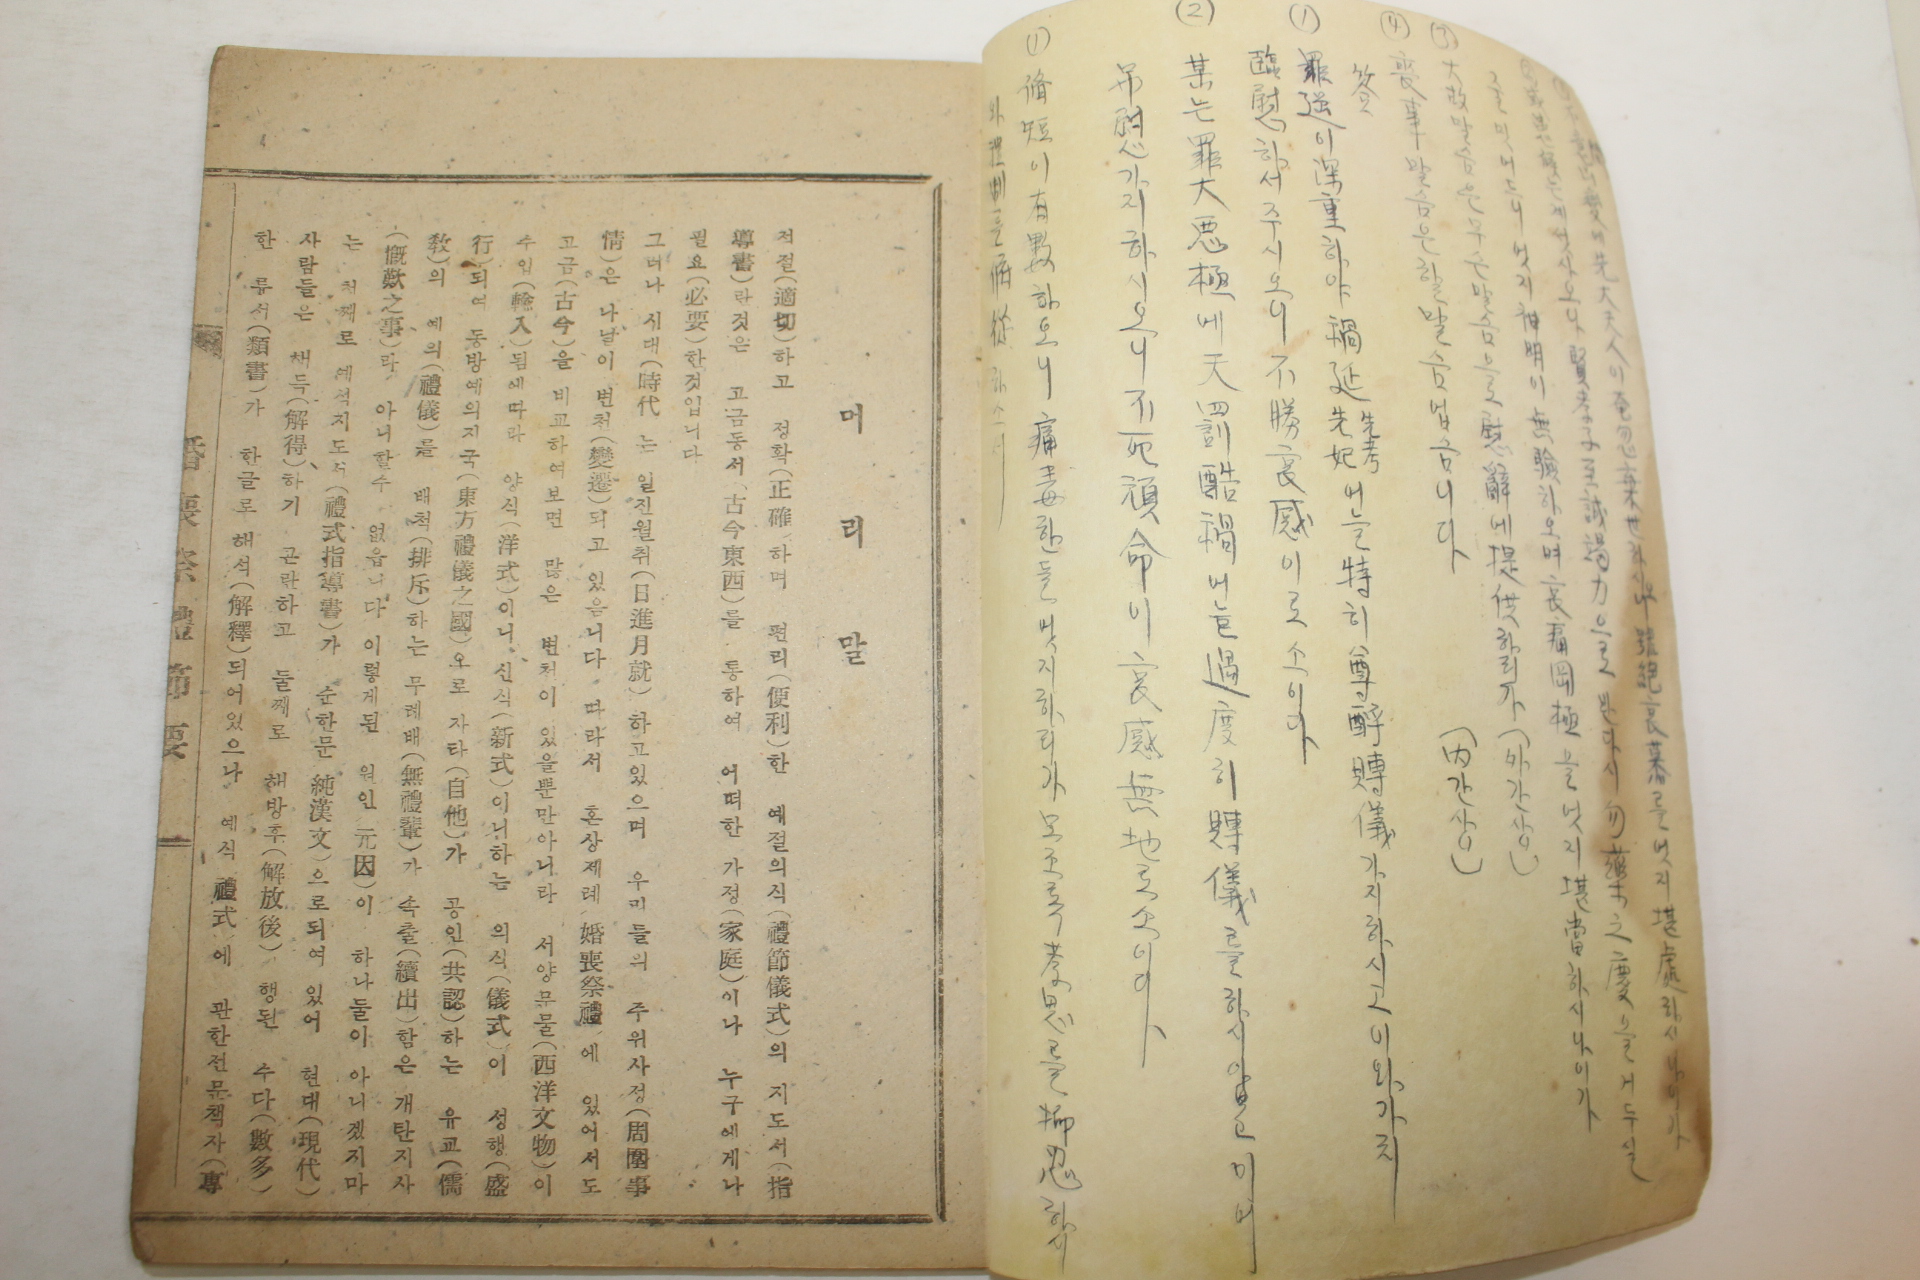 先大夫人이 奄忽棄世하시니 雖絶哀慕를 엇지 堪處하시나이가
게셧사오니 賢孝子 至誠竭力으로 반다시 勿藥之慶을 거두실
줄 밋어드니 엇지 神明이 無驗하오며 哀痛罔極을 엇지 堪當하시나이가
③ 大故말슴은 무슨말슴으로 慰解에 提供하리가 (外간상)
④ 喪事말슴은 할말슴업슴니다 (內간상)
答
① 罪逆이 深重하야 禍延先考先妣어늘 特히 尊酹賻儀가지하시고 이와가치
臨慰하서주시오니 不勝哀感이로소이다
② 某는 罪大惡極에 天罰酷禍어늘 過度히 賻儀를 하시압고 이버
弔慰가지하시오니 不死頑命이 哀感無地로소이다
① 脩短이 有數하오니 痛毒한들 엇지하리가 모조록 孝思를 抑忍하시
와 禮制를 俯從하소서
머리말
적절(適切)하고 정확(正確)하며 편리(便利)한 예절의식(禮節儀式)의 지도서(指
導書)란것은 고금동서(古今東西)를 통하여 어떠한 가정(家庭)이나 누구에게나
필요(必要)한것입니다
그러나 시대(時代)는 일진월취(日進月就)하고있으며 우리들의 주위사정(周圍事
情)은 나날이 변천(變遷)되고 있음니다 따라서 혼상제례(婚喪祭禮)에 있어서도
고금(古今)을 비교하여보면 많은 변천이 있을뿐만아니라 서양문물(西洋文物)이
수입(輸入)됨에따라 양식(洋式)이니、신식(新式)이니하는 의식(儀式)이 성행(盛
行)되여 동방예의지국(東方禮儀之國)으로 자타(自他)가 공인(共認)하는 유교(儒
敎)의 예의(禮儀)를 배척(排斥)하는 무례배(無禮輩)가 속출(續出)함은 개탄지사
(慨歎之事)라 아니할수 없읍니다 이렇게된 원인(元因)이 하나둘이 아니겠지마
는 첫째로 예식지도서(禮式指導書)가 순한문(純漢文)으로되여 있어 현대(現代)
사람들은 해득(解得)하기 곤란하고 둘째로 해방후(解放後) 행된 수다(數多)
한 류서(類書)가 한글로 해석(解釋)되어있으나 예식(禮式)에 관한전문책자(專
婚喪祭禮節要 一